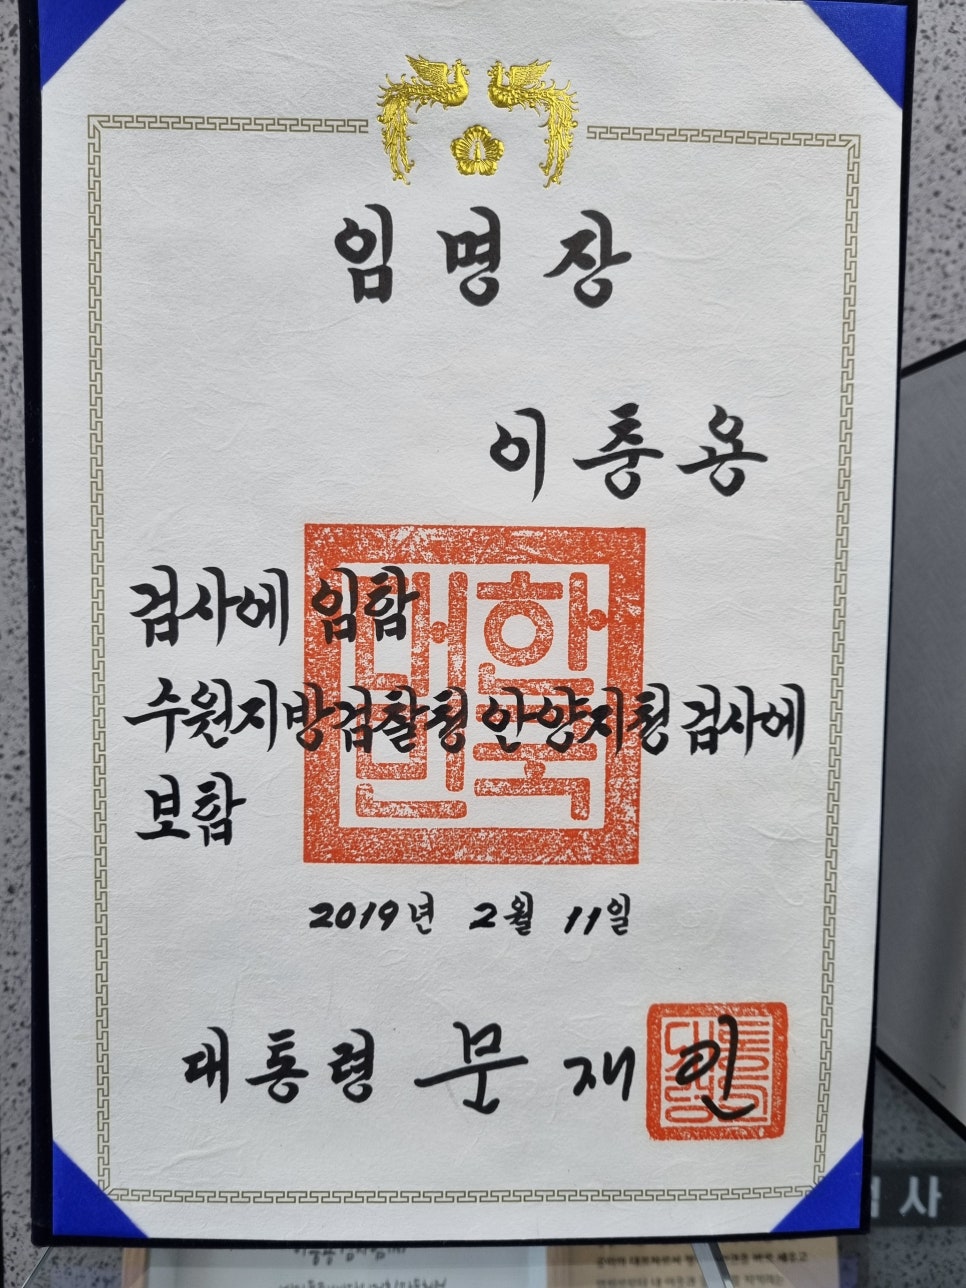 임명장
이충용
검사에 임함
수원지방검찰청 안양지청 검사에
보함
대한민국
2019년 2월 11일
대통령 문재인
사